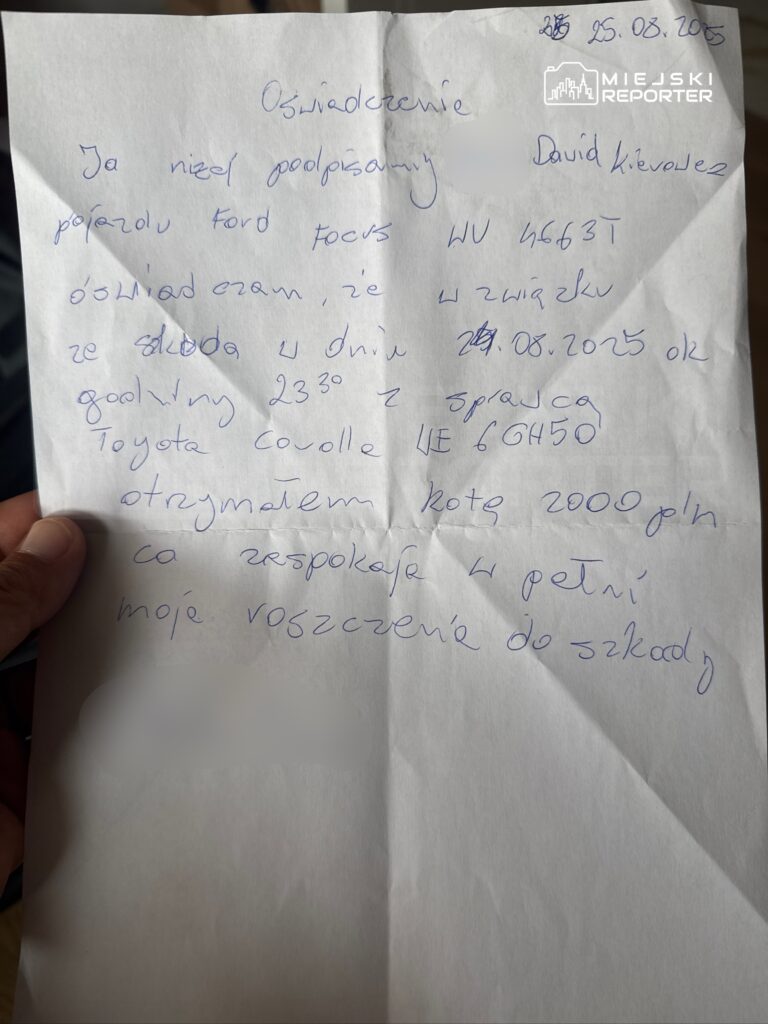 25.08.2025
MIEJSKI
REPORTER
Oświadczenie
Ja niżej podpisamy David kierowez
pojazdu Ford Focus WU 4663T
óświadczam, że w związku
ze szkoda w dniu 24.08.2025 ok
godziny 23 30 z sprawcą
Toyota Corolla WE 6GH50
otrzymałem kotę 2000 pln
co zaspokaja w pełni
moje roszczenia do szkody